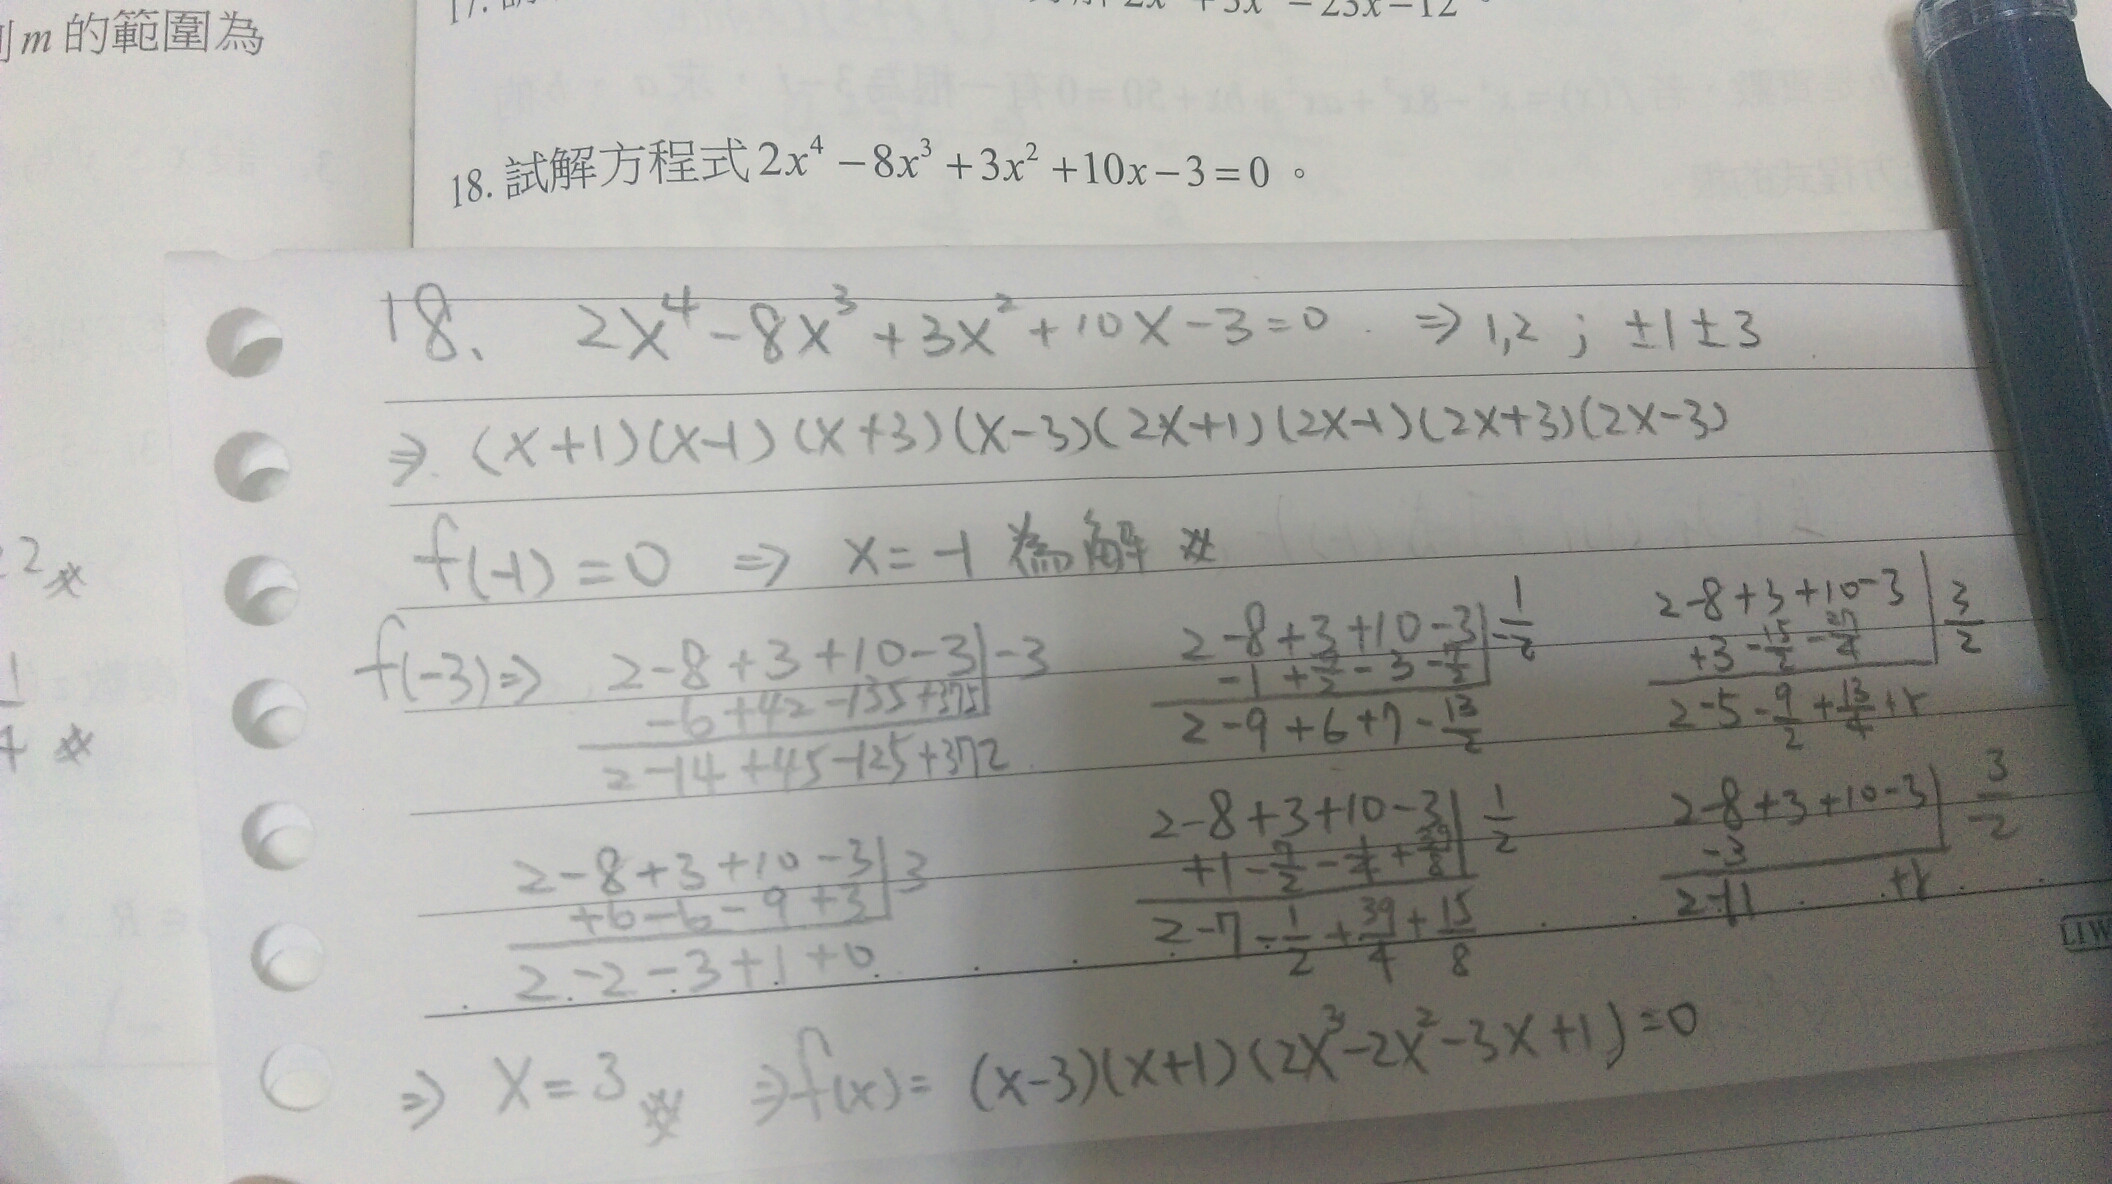 m 的範圍為
2x
18. 試解方程式 2x⁴ − 8x³ + 3x² + 10x − 3 = 0 。
18. 2x⁴ - 8x³ + 3x² + 10x - 3 = 0 ⇒ 1,2 ; ±1 ±3
⇒ (x+1)(x-1)(x+3)(x-3)(2x+1)(2x-1)(2x+3)(2x-3)
f(-1) = 0 ⇒ x = -1 為解
f(-3) ⇒ 2 - 8 + 3 + 10 - 3 | -3
- 6 + 42 - 135 + 375
2 - 14 + 45 - 125 + 372
2 - 8 + 3 + 10 - 3 | 1/-2
- 1 + 9/2 - 3 - 7/2
2 - 9 + 6 + 7 - 13/2
2 - 8 + 3 + 10 - 3 | 3/2
+ 3 - 15/2 - 27/4
2 - 5 - 9/2 + 13/4 + r
2 - 8 + 3 + 10 - 3 | 3
+ 6 - 6 - 9 + 3
2 - 2 - 3 + 1 + 0
2 - 8 + 3 + 10 - 3 | 1/2
+ 1 - 7/2 - 1/4 + 39/8
2 - 7 - 1/2 + 39/4 + 15/8
2 - 8 + 3 + 10 - 3 | 3/-2
- 3
2 - 11 + r
⇒ x = 3 ⇒ f(x) = (x-3)(x+1)(2x³ - 2x² - 3x + 1) = 0